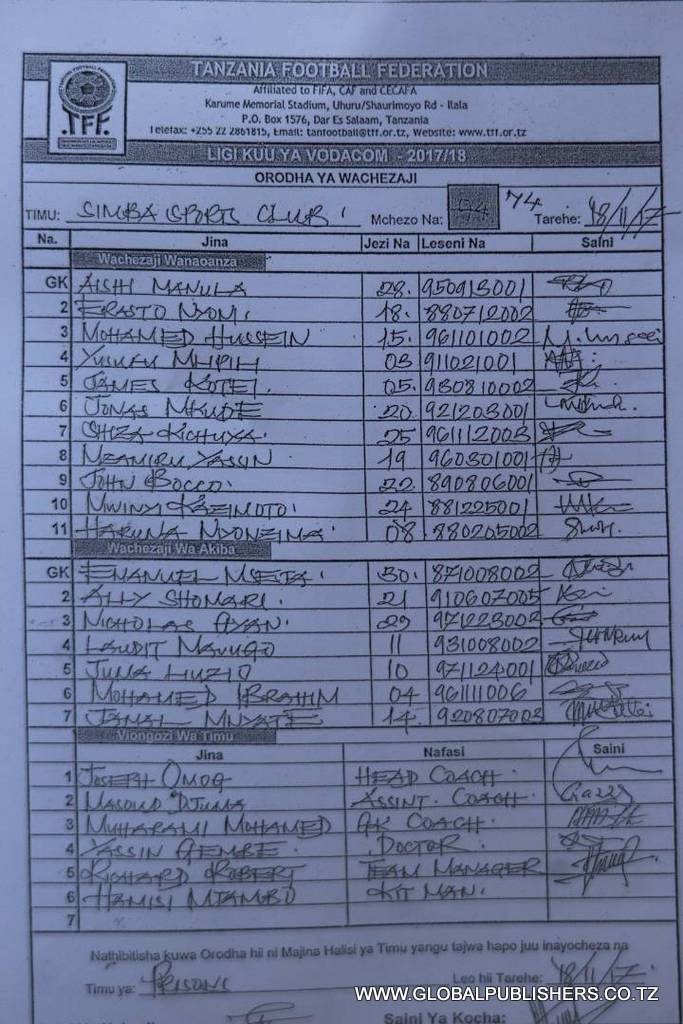 TANZANIA FOOTBALL FEDERATION
Affiliated to FIFA, CAF and CECAFA
Karume Memorial Stadium, Uhuru/Shaurimoyo Rd - Ilala
P.O. Box 1576, Dar Es Salaam, Tanzania
Telefax: +255 22 2861815, Email: tanfootball@tff.or.tz, Website: www.tff.or.tz
.TFF.
LIGI KUU YA VODACOM - 2017/18
ORODHA YA WACHEZAJI
TIMU: SIMBA SPORTS CLUB Mchezo Na: 74 Tarehe: 18/11/17
Na. Jina Jezi Na Leseni Na Saini
Wachezaji Wanaoanza
GK AISHI MANULA 28. 950913001
2 ERASTO NYONI 18. 880712002
3 MOHAMED HUSSEIN 15. 961101002
4 YUSUFU MLIPILI 03 911021001
5 JAMES KOTEI. 05. 930810002
6 JONAS MKUDE 20 921203001
7 SHIZA KICHUYA. 25 961112003
8 MZAMIRU YASSIN 19 960301001
9 JOHN BOCCO. 22. 890806001
10 MWINYI KAZIMOTO. 24 881225001
11 HARUNA NIYONZIMA 08. 880205002
Wachezaji Wa Akiba
GK EMANUEL MSEJA. 30. 871008002
2 ALLY SHOMARI. 21 910607005
3 NICHOLAS GYAN. 29 971223002
4 LAUDIT MAVUGO 11 931008002
5 JUMA LIUZIO 10 971124001
6 MOHAMED IBRAHIM 04 96111006
7 JAMAL MNYATE 14. 920807003
Viongozi Wa Timu
Jina Nafasi Saini
1 JOSEPH OMOG HEAD COACH.
2 MASOUD DJUMA ASSINT. COACH
3 MUHARAMI MOHAMED GK COACH.
4 YASSIN GEMBE. DOCTOR.
5 RICHARD ROBERT TEAM MANAGER
6 HAMISI MTAMBO KIT MAN.
7
Nathibitisha kuwa Orodha hii ni Majina Halisi ya Timu yangu tajwa hapo juu inayocheza na
Timu ya: PRISONS Leo hii Tarehe: 18/11/17.
WWW.GLOBALPUBLISHERS.CO.TZ
Saini Ya Kocha: